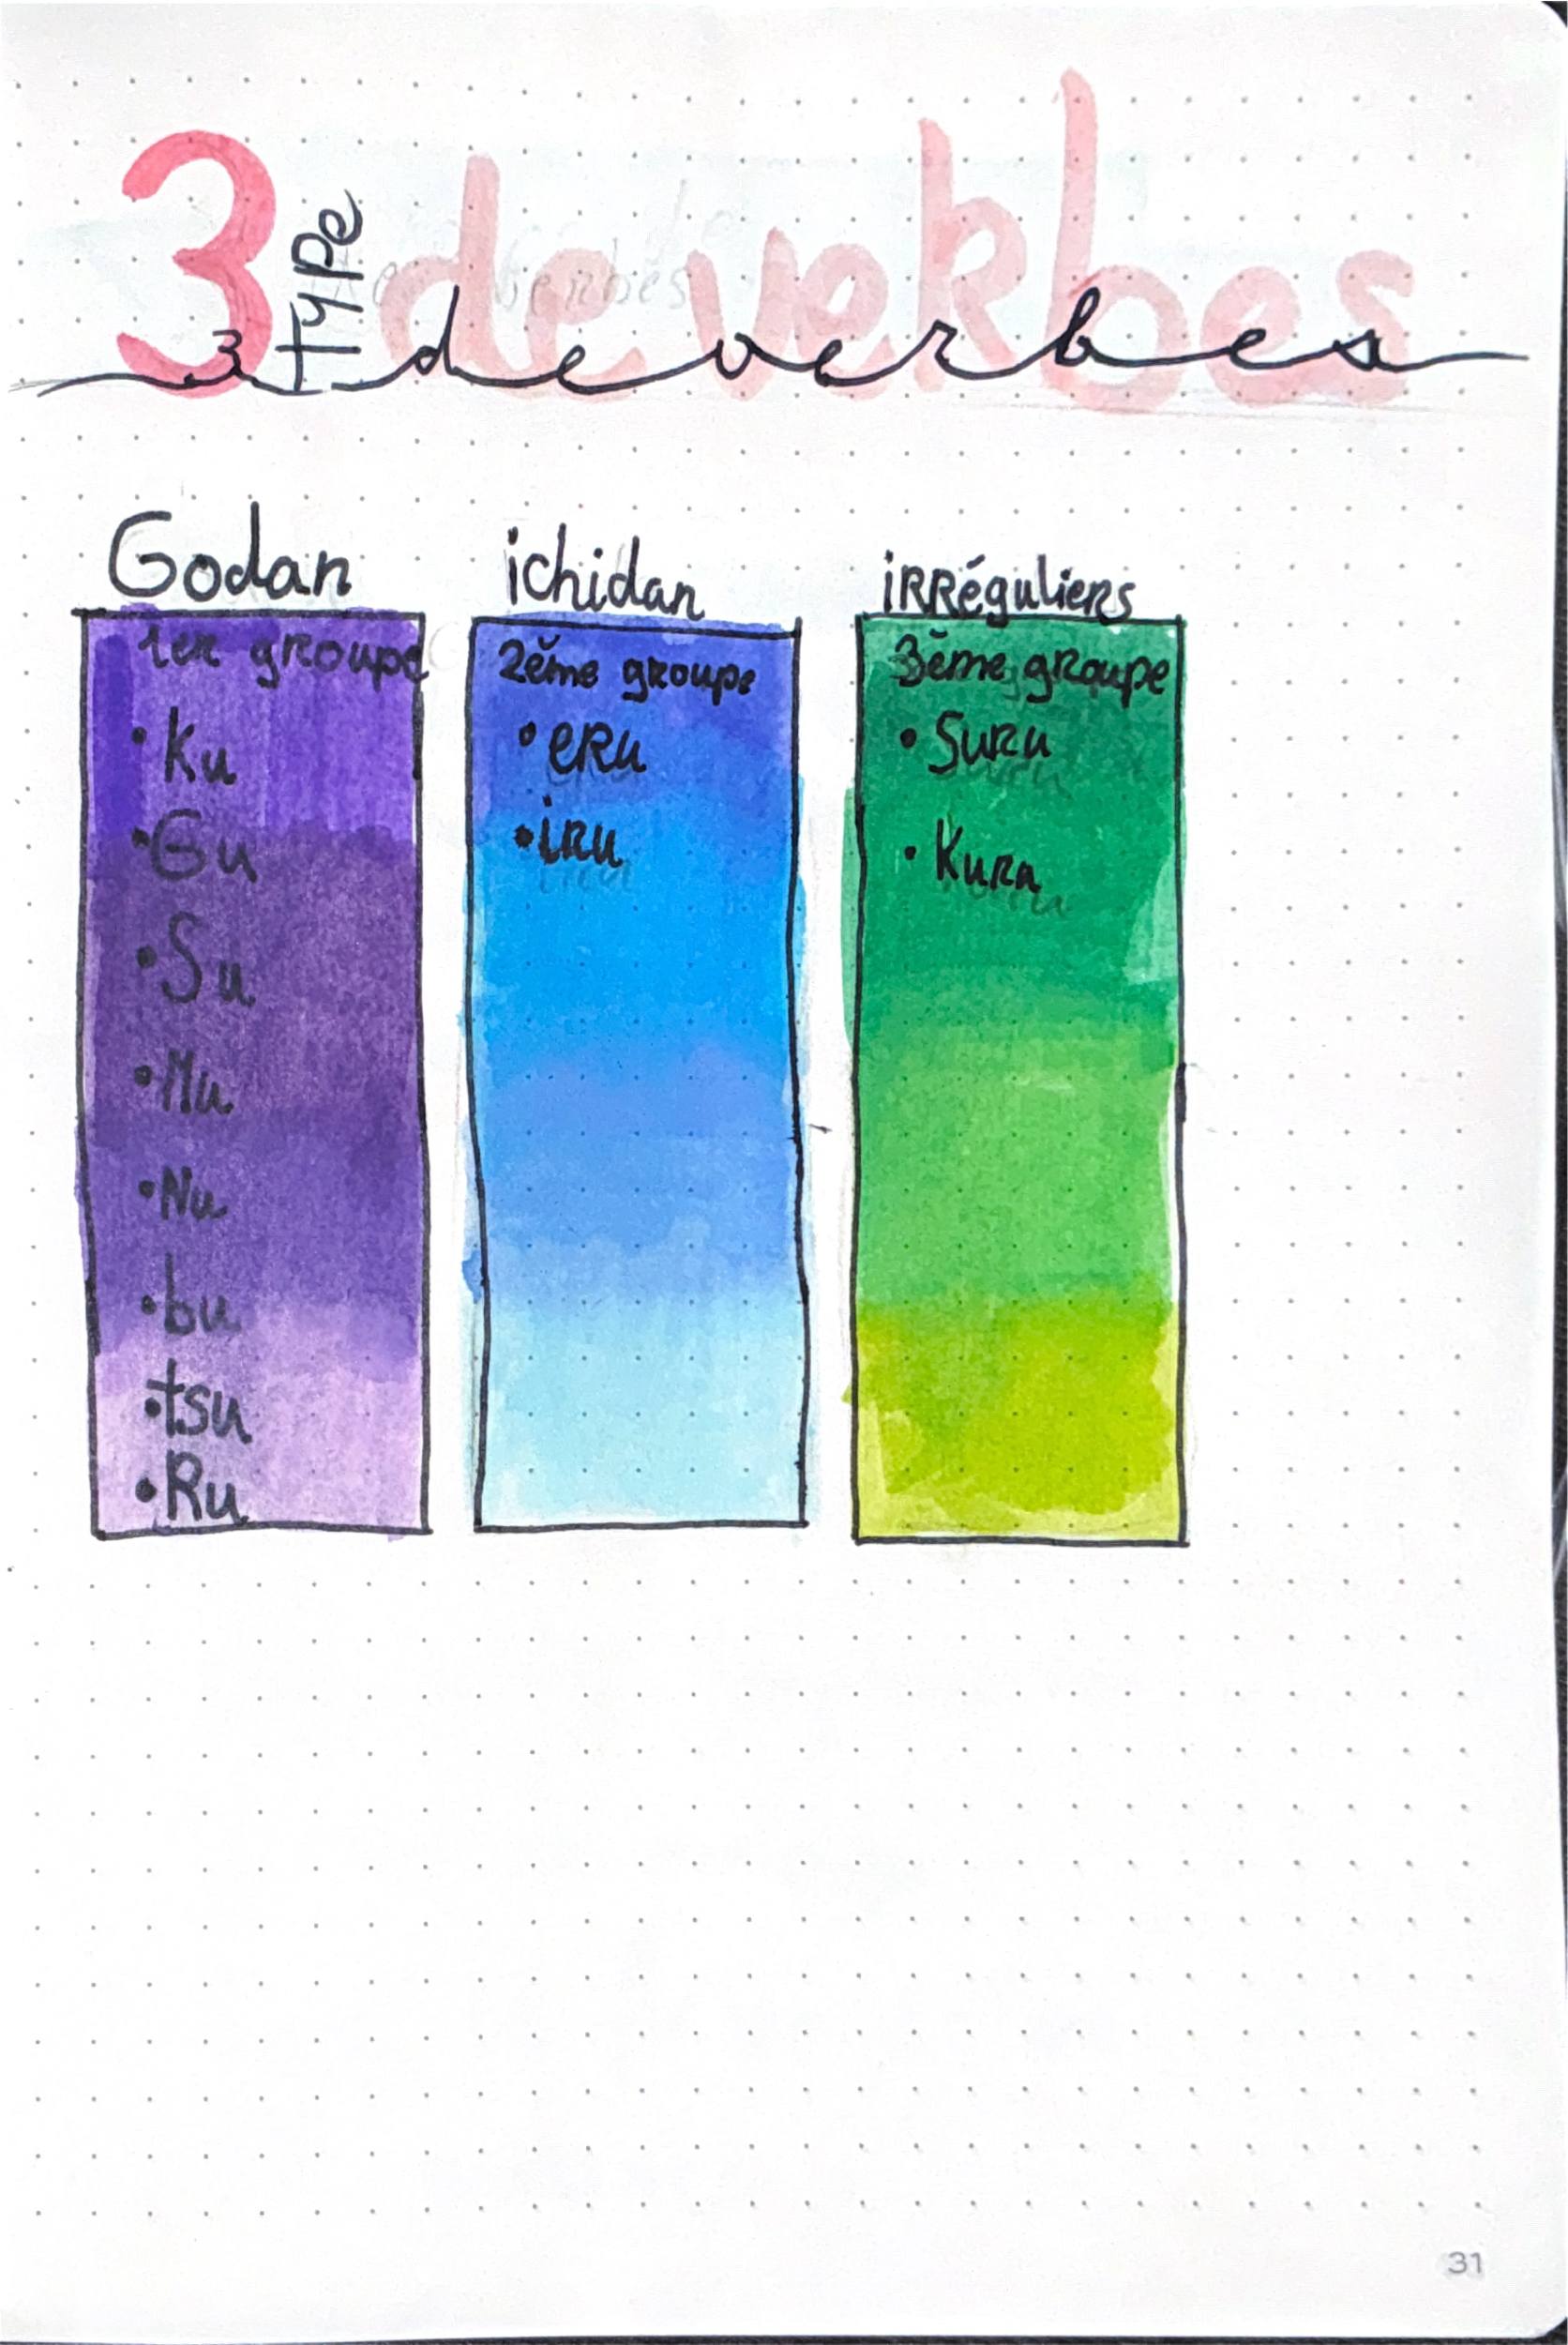 3 TYPE de verbes
3 de verbes
Godan
1er groupe
• Ku
• Gu
• Su
• Mu
• Nu
• bu
• tsu
• Ru
ichidan
2ème groupe
• eRu
• iRu
iRRéguliers
3ème groupe
• Suru
• Kuru
31